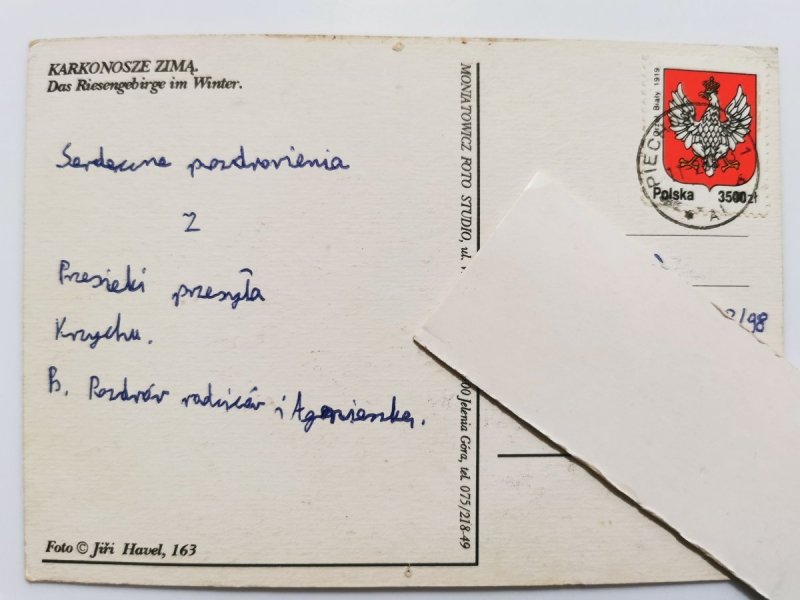 KARKONOSZE ZIMĄ.
Das Riesengebirge im Winter.
Serdeczne pozdrowienia
z
Przesieki przesyła
Krzychu.
Ps. Pozdrów rodziców i Agnieszkę.
Foto © Jiří Havel, 163
MONIATOWICZ FOTO STUDIO, ul.
00 Jelenia Góra, tel. 075/218-49
Orzeł Biały 1919
Polska 3500zł
PIECH
/98